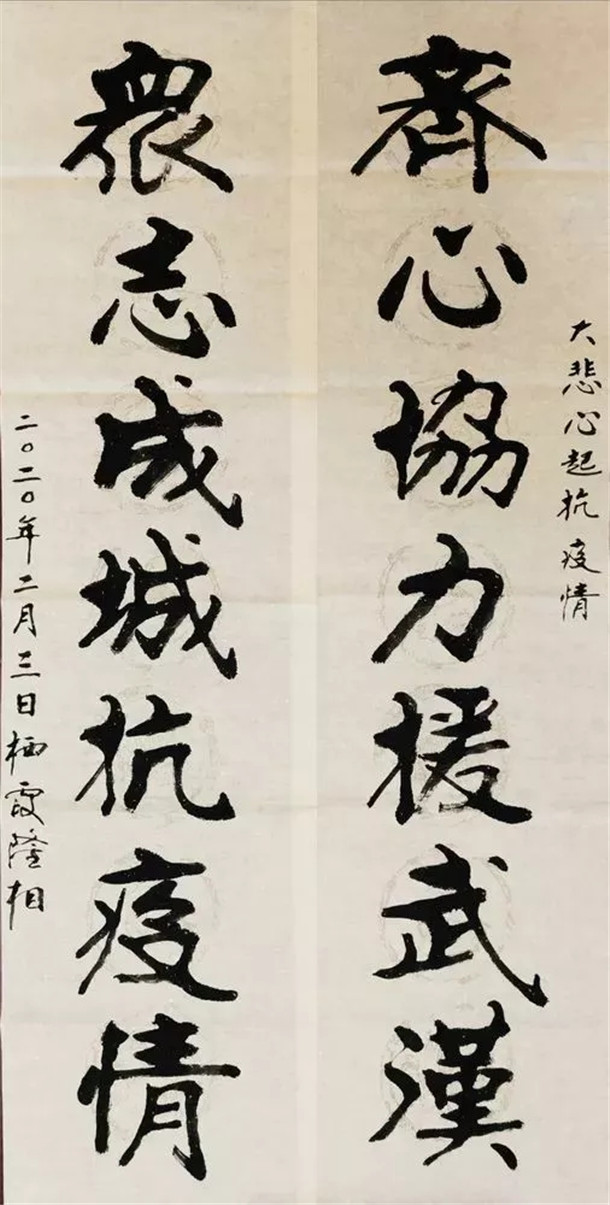 大悲心起抗疫情
齊心協力援武漢
眾志成城抗疫情
二〇二〇年二月三日栖霞隆相